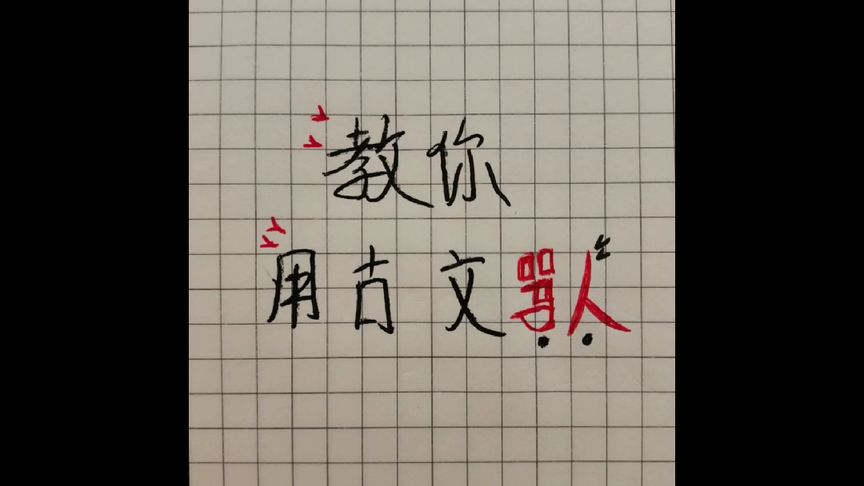 教你
用古文骂人